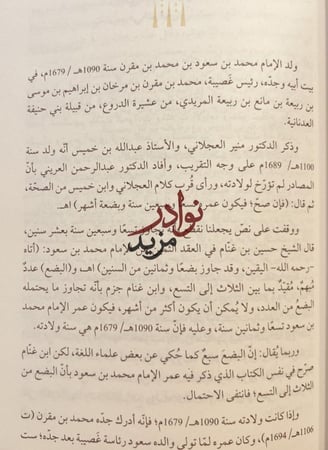 ولد الإمام محمد بن سعود بن محمد بن مقرن سنة 1090هـ/ 1679م، في
بيت أبيه وجدّه، رئيس غَصيبة، محمد بن مقرن بن مرخان بن إبراهيم بن موسى
بن ربيعة بن مانع بن ربيعة المريدي، من عشيرة الدروع، من قبيلة بني حنيفة
العدنانية.
وذكر الدكتور منير العجلاني، والأستاذ عبدالله بن خميس أنّه ولد سنة
1100هـ/ 1689م على وجه التقريب، وأفاد الدكتور عبدالرحمن العريني بأنّ
المصادر لم تؤرّخ لولادته، ورأى قُرب كلام العجلاني وابن خميس من الصحّة،
ثم قال: (فإن صحّ؛ فيكون عمر
ين سنة وبضعة أشهر) اهـ.
نوادر
مزيد
ووقفت على نصّ يجعلنا نق
تسعًا وسبعين سنة بعشر سنين،
قال الشيخ حسين بن غنّام في العقد
مام محمد بن سعود: (أتاه
-رحمه الله- اليقين، وقد جاوز بضعًا وثمانين من السنين) اهـ، و(البضع) عددٌ
مُبهمٌ، مُقيّدٌ بما بين الثلاث إلى التسع، وابن غنام جزم بأنّه تجاوز ما يحتمله
البضع من العدد، ولا يُمكن أن يكون أكثر من أشهر، فيكون عمر الإمام محمد
بن سعود تسعًا وثمانين سنة، وعليه فإنّ سنة 1090هـ/ 1679م هي سنة ولادته.
وربما يُقال: إنّ البضع سبعٌ كما حُكي عن بعض علماء اللغة، لكن ابن غنّام
صرّح في نفس الكتاب الذي ذكر فيه عمر الإمام محمد بن سعود بأنّ البضع من
الثلاث إلى التسع؛ فانتفى الاحتمال.
وإذا كانت ولادته سنة 1090هـ/ 1679م؛ فإنّه أدرك جدّه محمد بن مقرن (ت
1106هـ/ 1694م)، وكان عمره لمّا تولّى والده سعود رئاسة غصيبة بعد جدّه؛ ست